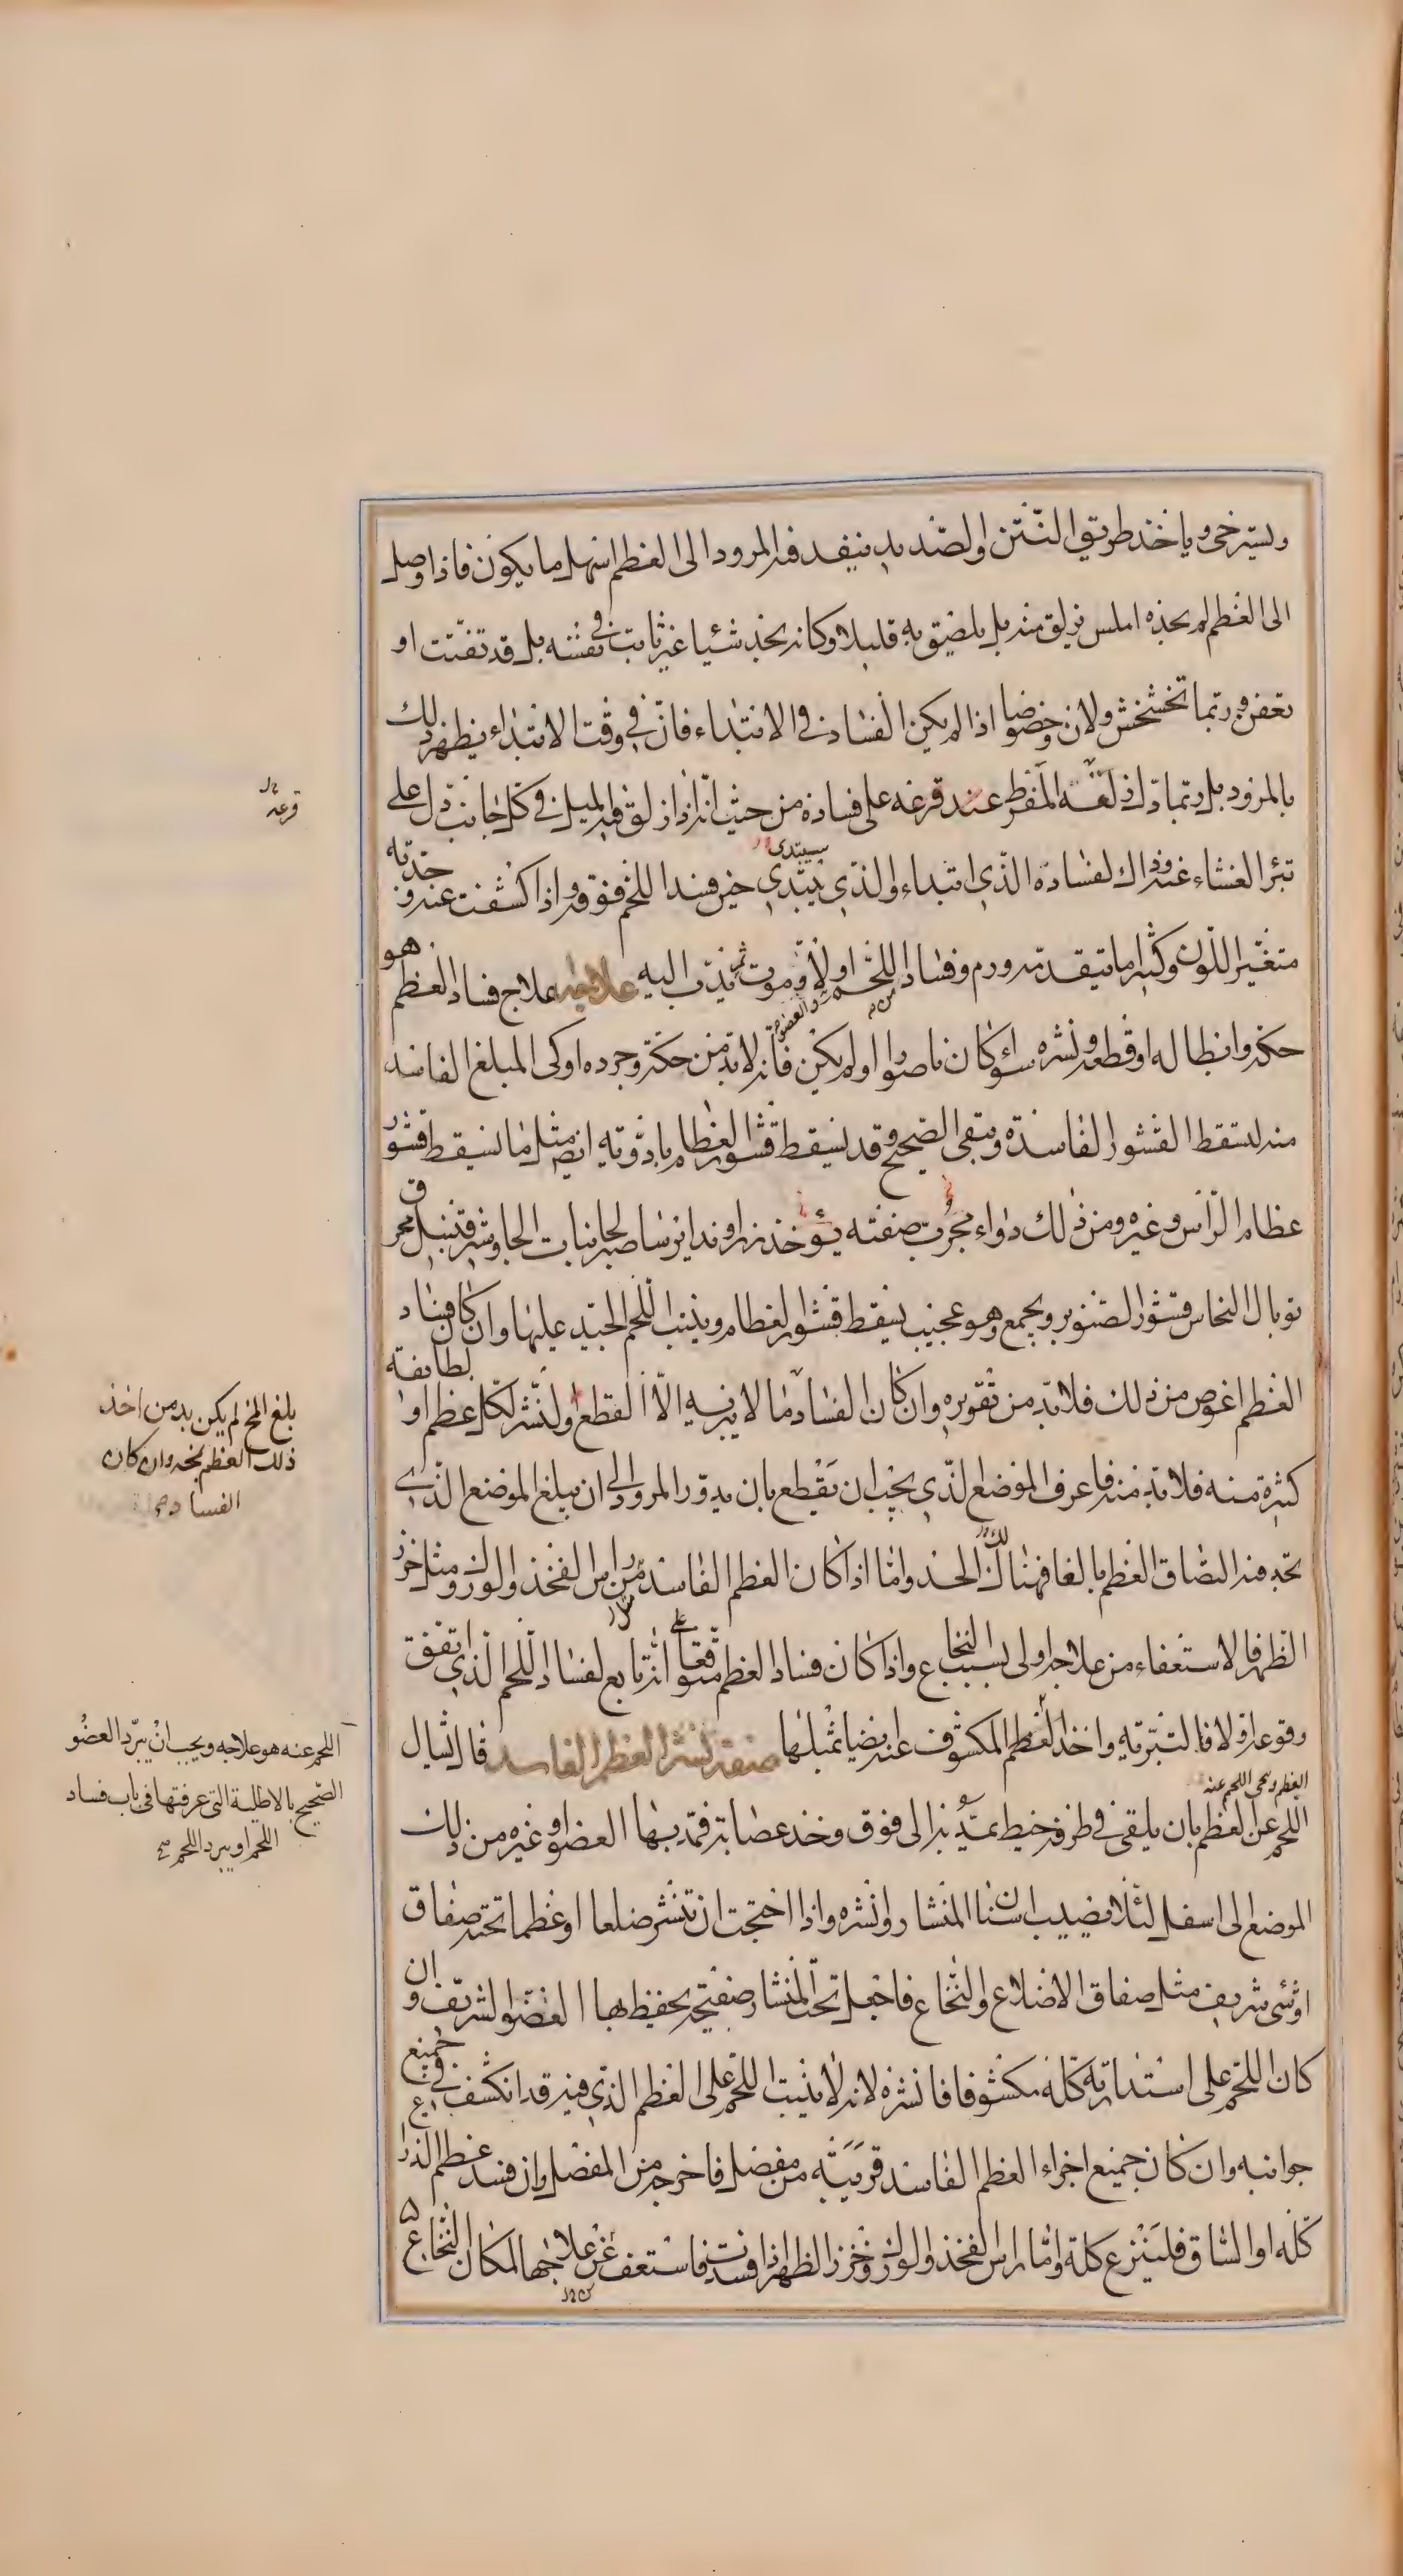 ويسترخى وياخذ طريق النتن والصديد ينفد فيه المرود الى العظم اسهل ما يكون فاذا وصل
الى العظم لم يجده املس يزلق منه بل يلصق به قليلا وكانه يجد شيئا غير ثابت في نفسه بل قد تفتت او
تعفن وربما تخشخش ولان وخصوصا اذا لم يكن الفساد في الابتداء فان في وقت الابتداء يظهر ذلك
بالمرود بل ربما دل عند قرعه على فساده من حيث انه اذا زلق فيه الميل في كل جانب دل على
تبرا الغشاء عنه وذلك لفساده الذي ابتداء والذي يبتدي حين فسد اللحم فوقه واذا كشفت عنه وجدته
متغير اللون وكثيرا ما يتقدمه ورم وفساد اللحم اولا وموت ثم يدب اليه علاجه علاج فساد العظم هو
حكه وابطاله او قطعه ونشره سواء كان ناصورا او لم يكن فانه لا بد من حكه وجرده او كى المبلغ الفاسد
منه ليسقط القشور الفاسدة ويبقى الصحيح وقد يسقط قشور العظام بادوية ايضا مثل ما يسقط قشور
عظام الراس وغيره ومن ذلك دواء مجرب صفته يؤخذ زراوند ايرسا صبر نبات الجاوشير محرق
توبال النحاس قشور الصنوبر ويجمع وهو عجيب يسقط قشور العظام وينبت اللحم الجيد عليها وان كان فساد
العظم اغوص من ذلك فلا بد من تقويره وان كان الفساد مما لا يبريه الا القطع والنشر لكل عظم او لطايفة
كثيرة منه فلا بد منه فاعرف الموضع الذي يجب ان يقطع بان يدور المرود الى ان يبلغ الموضع الذي
تجد فيه التصاق العظم بالغا فهنالك الحد واما اذا كان العظم الفاسد من راس الفخذ والورك ومثل خرز
الظهر فالاستعفاء من علاجه اولى بسبب النخاع واذا كان فساد العظم متوقعا على انه تابع لفساد اللحم الذي اتفق
وقوعه اولا فالتبرية واخذ العظم المكشوف عنه ايضا بمثلها صفة نشر العظم الفاسد قال يشال
اللحم عن العظم بان يلقى في طرفه خيط يمد به الى فوق وخذ عصابة فمد بها العضو او غيره من ذلك
الموضع الى اسفل لئلا يصيب اسنان المنشار وانشره واذا احتجت ان تنشر ضلعا او عظما تحته صفاق
او شئ شريف مثل صفاق الاضلاع والنخاع فاجعل تحت المنشار صفيحة يحفظ بها العضو الشريف وان
كان اللحم على استدارته كله مكشوفا فانشره لانه لا ينبت اللحم على العظم الذي فيه قد انكشف في جميع
جوانبه وان كان جميع اجزاء العظم الفاسد قريبة من مفصل فاخرجه من المفصل وان فسد عظم الذراع
كله او الساق فلينزع كله واما راس الفخذ والورك وخرز الظهر اذا فسدت فاستعف عن علاجها لمكان النخاع
قرعه
بلغ المخ لم يكن بد من اخذ
ذلك العظم بمخه وان كان
الفساد
اللحم عنه هو علاجه ويجب ان يبرد العضو
الصحيح بالاطلية التى عرفتها فى باب فساد
اللحم او يبرد اللحم